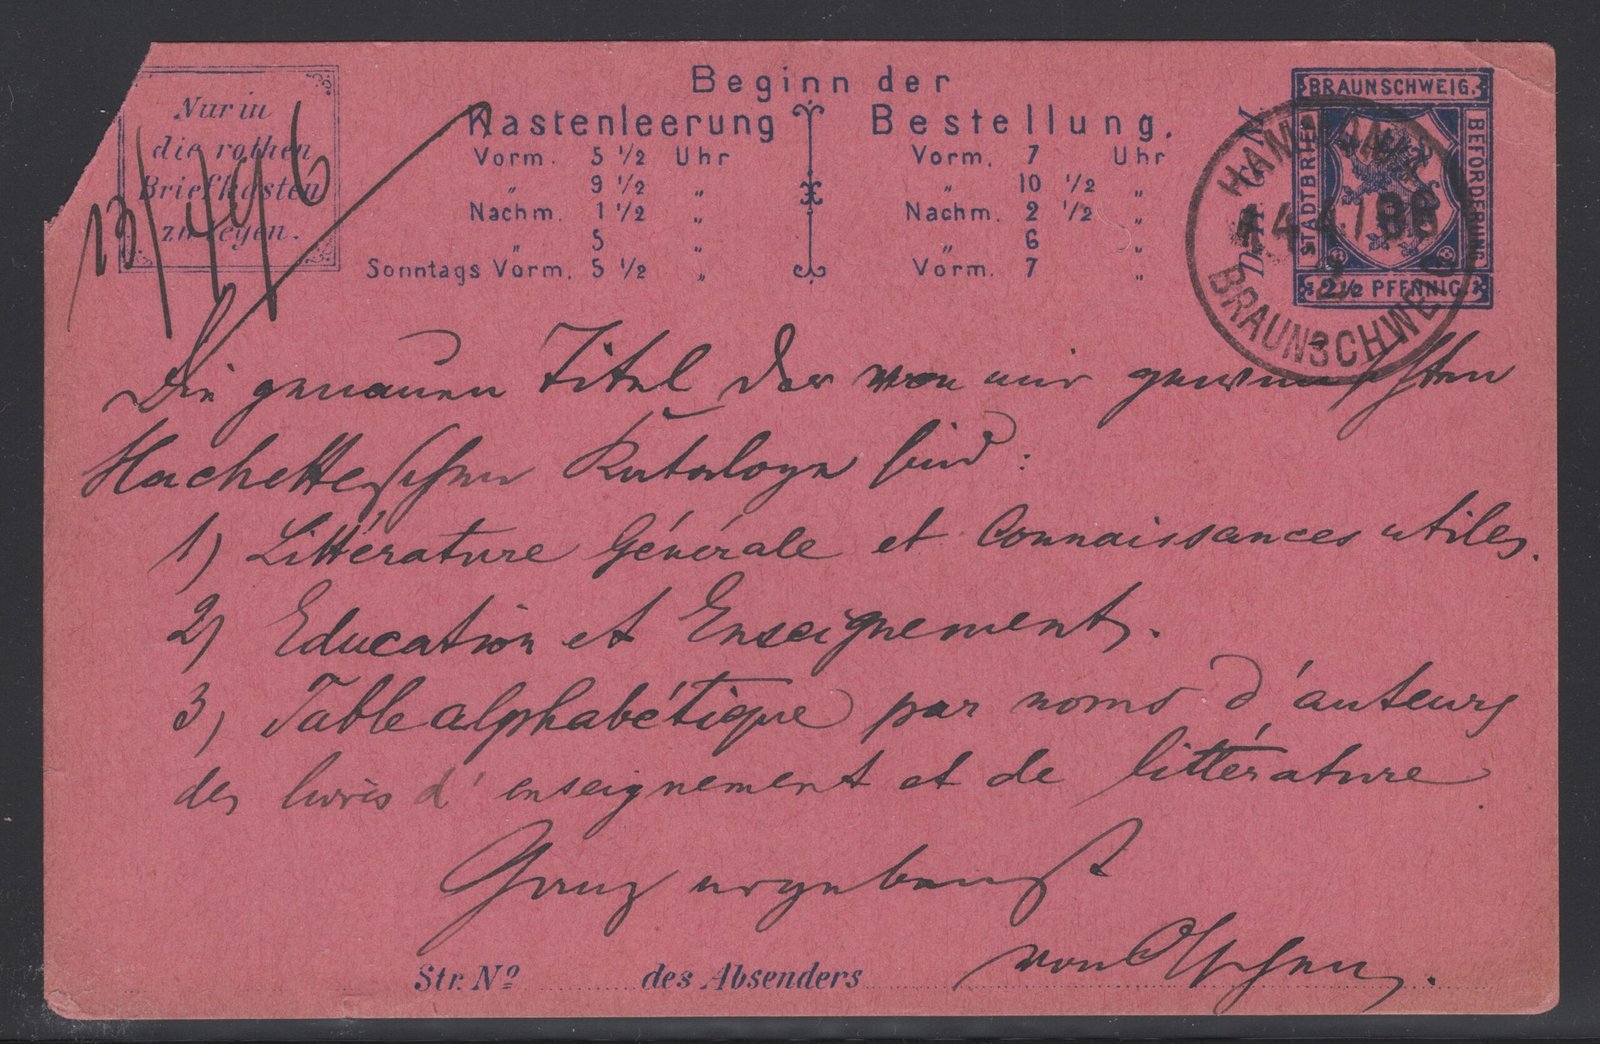 Nur in
die rothen
Briefkasten
zu legen.
13/4 96
Beginn der
Kastenleerung Bestellung.
Vorm. 5 1/2 Uhr Vorm. 7 Uhr
„ 9 1/2 „ „ 10 1/2 „
Nachm. 1 1/2 „ Nachm. 2 1/2 „
„ 5 „ „ 6 „
Sonntags Vorm. 5 1/2 „ Vorm. 7 „
BRAUNSCHWEIG.
STADTBRIEF
BEFORDERUNG
2 1/2 PFENNIG
BRAUNSCHWEIG
Die genauen Titel der von mir gewünschten
Hachetteschen Kataloge sind:
1) Littérature Générale et Connaissances utiles.
2) Education et Enseignement.
3) Table alphabétique par noms d'auteurs
des livres d'enseignement et de littérature
Ganz ergebenst
von
Str. No des Absenders